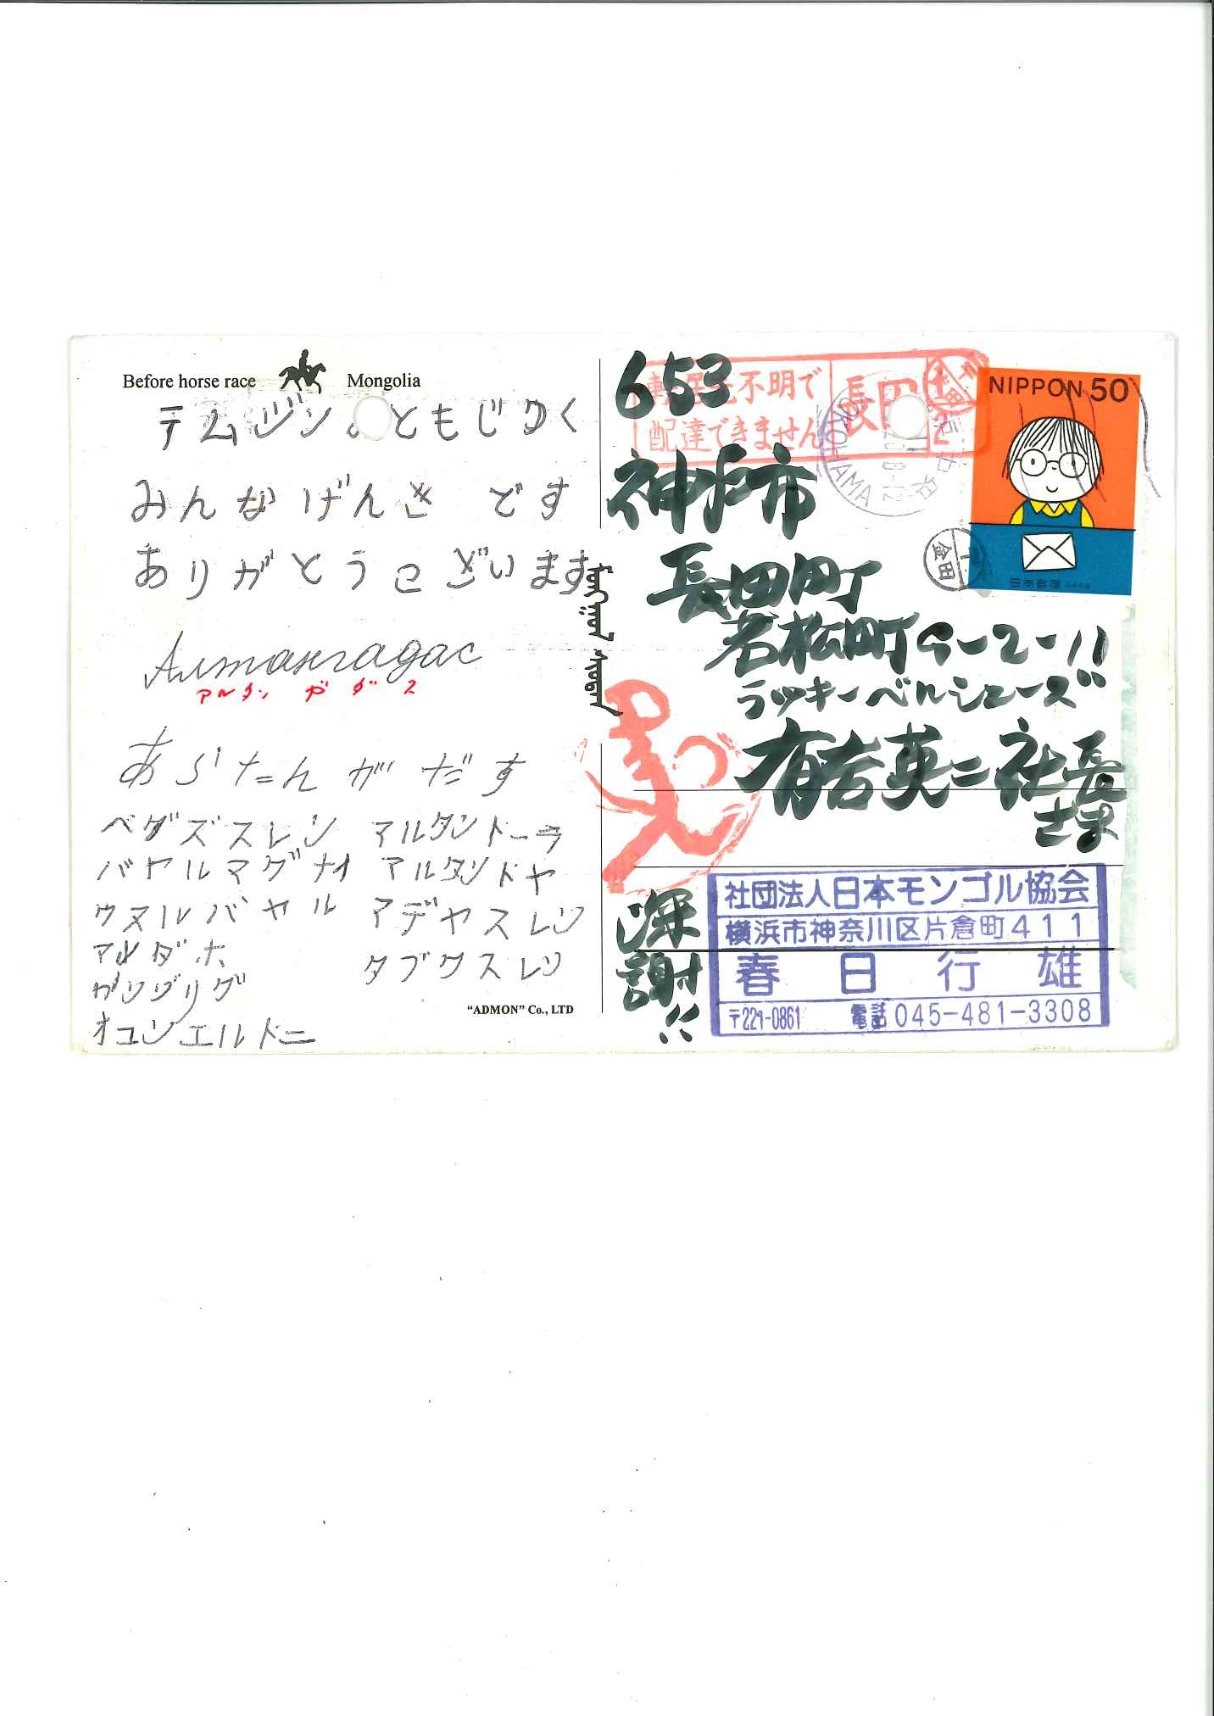 Before horse race
Mongolia
テムジン の ともじゅく
みんな げんき です
ありがとうございます
Алтангадас
アルタン ガダス
あらたんがだす
ベグズスレン アルタンドーラ
バヤルマグナイ アルタンドヤ
ウヌルバヤル アデヤスレン
アルダホ
タブクスレン
ガンゾリグ
オユンエルドニ
"ADMON" Co., LTD
653
不明で
配達できません
長田
YOKOHAMA
NIPPON 50
日本郵便
金田
神戸市
長田町
若松町
ラッキーベルシューズ
有吉英二社長
さま
深謝!!
社団法人日本モンゴル協会
横浜市神奈川区片倉町411
春日行雄
〒221-0861 電話045-481-3308